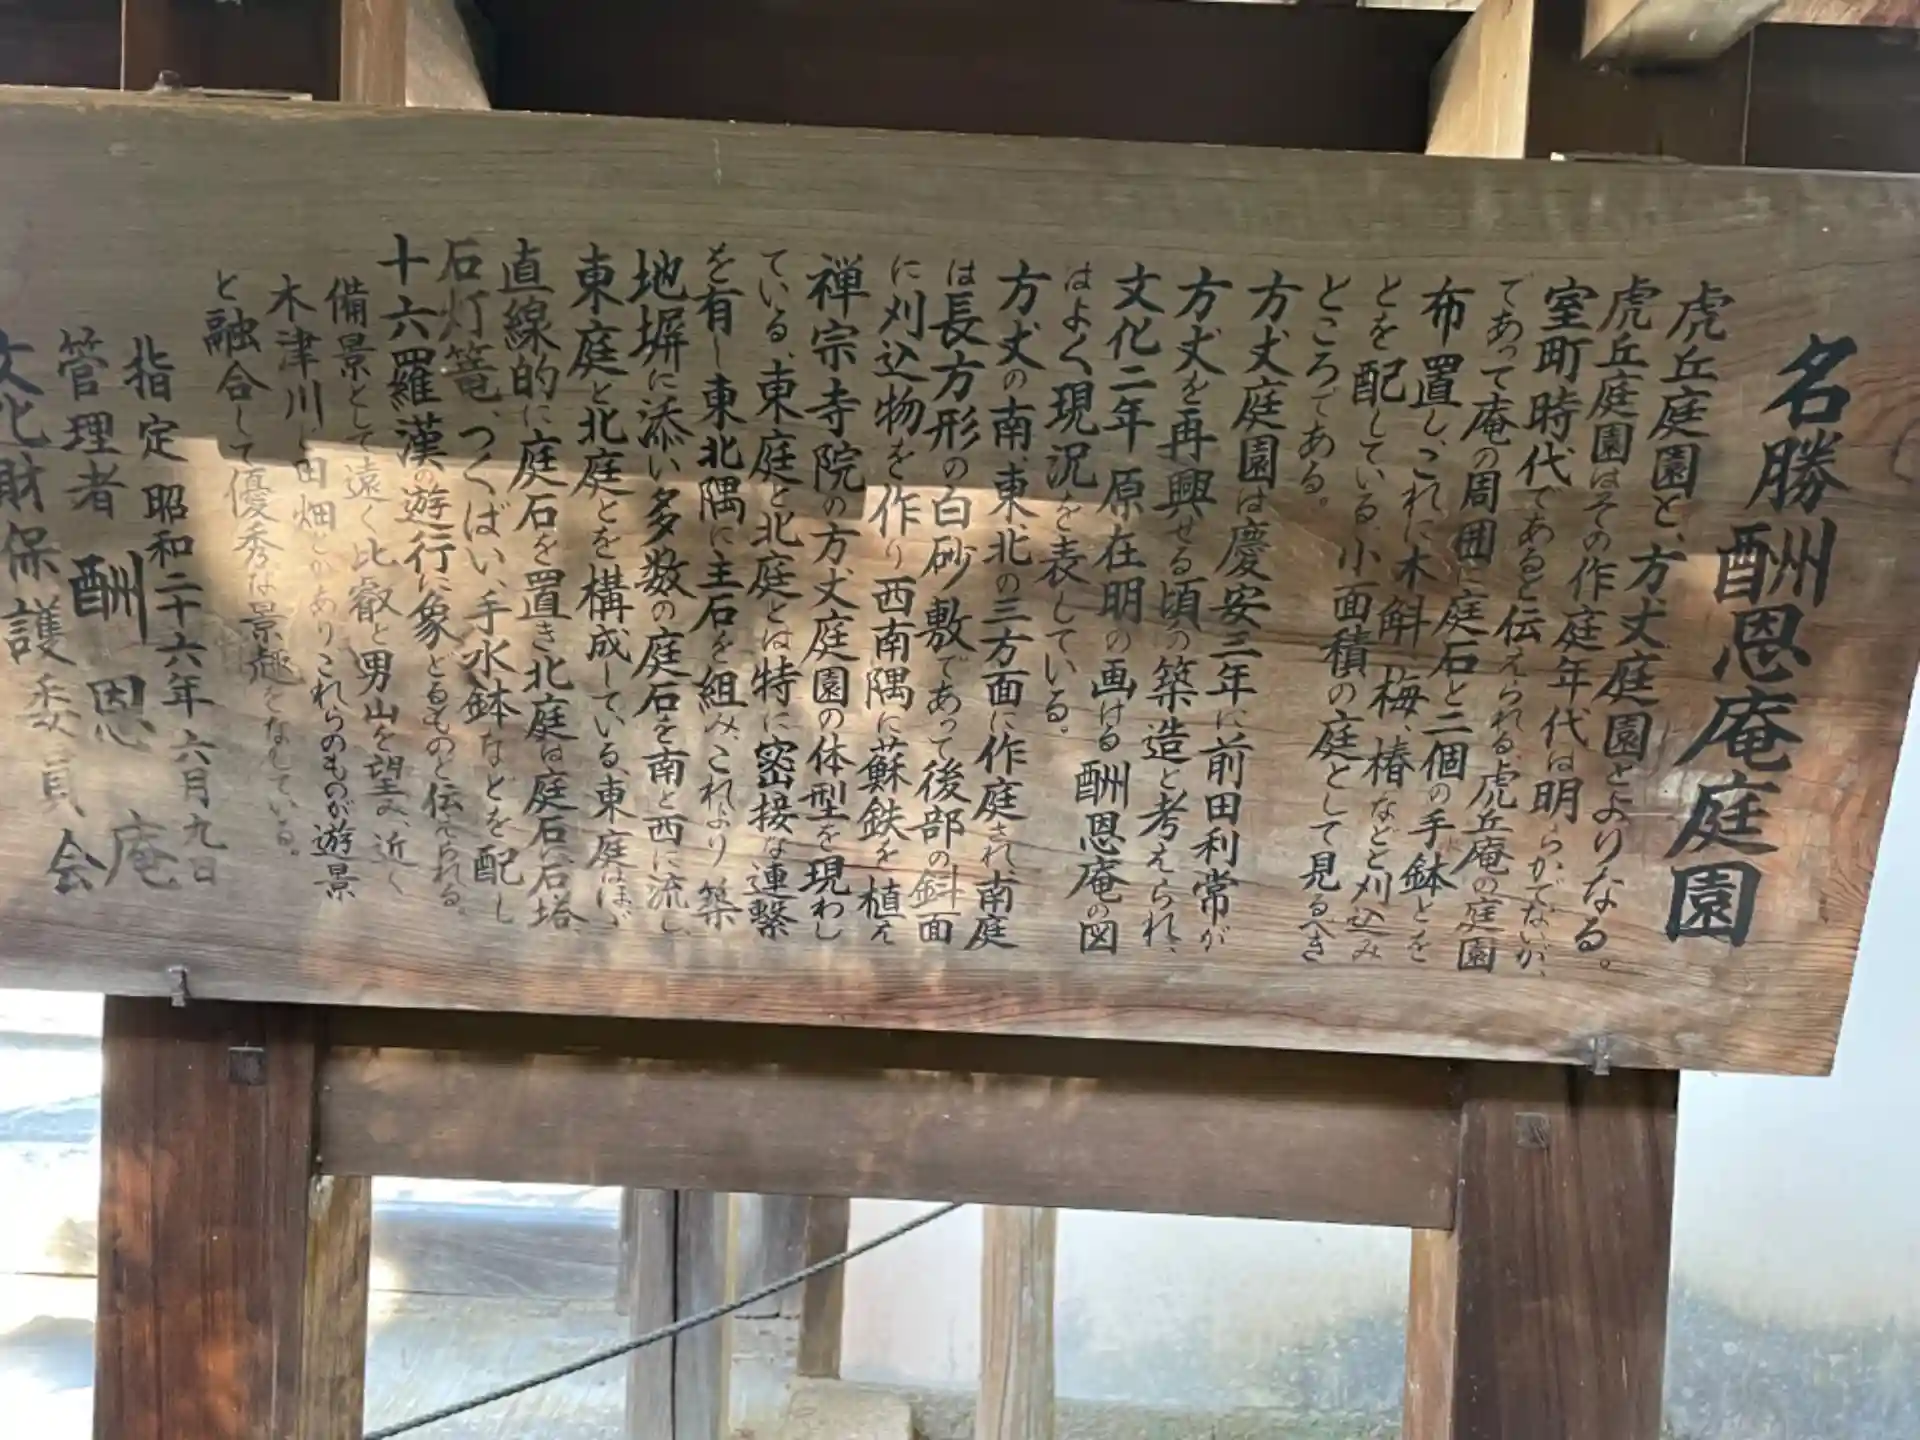 名勝酬恩庵庭園
虎丘庭園と、方丈庭園とよりなる。
虎丘庭園はその作庭年代は明らかでないが、
室町時代であると伝えられる、虎丘庵の庭園
であって庵の周囲に庭石と二個の手鉢とを
布置し、これに木斛、梅、椿などと刈込み
とを配している、小面積の庭として見るべき
ところである。
方丈庭園は慶安三年に前田利常が
方丈を再興せる頃の築造と考えられ、
文化二年原在明の画ける酬恩庵の図
はよく現況を表している。
方丈の南、東、北の三方面に作庭され、南庭
は長方形の白砂敷であって後部の斜面
に刈込物を作り西南隅に蘇鉄を植え
禅宗寺院の方丈庭園の体型を現わし
ている、東庭と北庭とは特に密接な連繋
を有し東北隅に主石を組み、これより築
地塀に添い多数の庭石を南と西に流し、
東庭と北庭とを構成している、東庭はほゞ
直線的に庭石を置き北庭は庭石に石塔、
石灯篭、つくばい、手水鉢などを配し
十六羅漢の遊行に象どるものと伝えられる。
備景として遠く比叡と男山を望み、近く
木津川と田畑とがありこれらのものが遊景
と融合して優秀な景趣をなしている。
指定 昭和二十六年六月九日
管理者 酬恩庵
文化財保護委員会